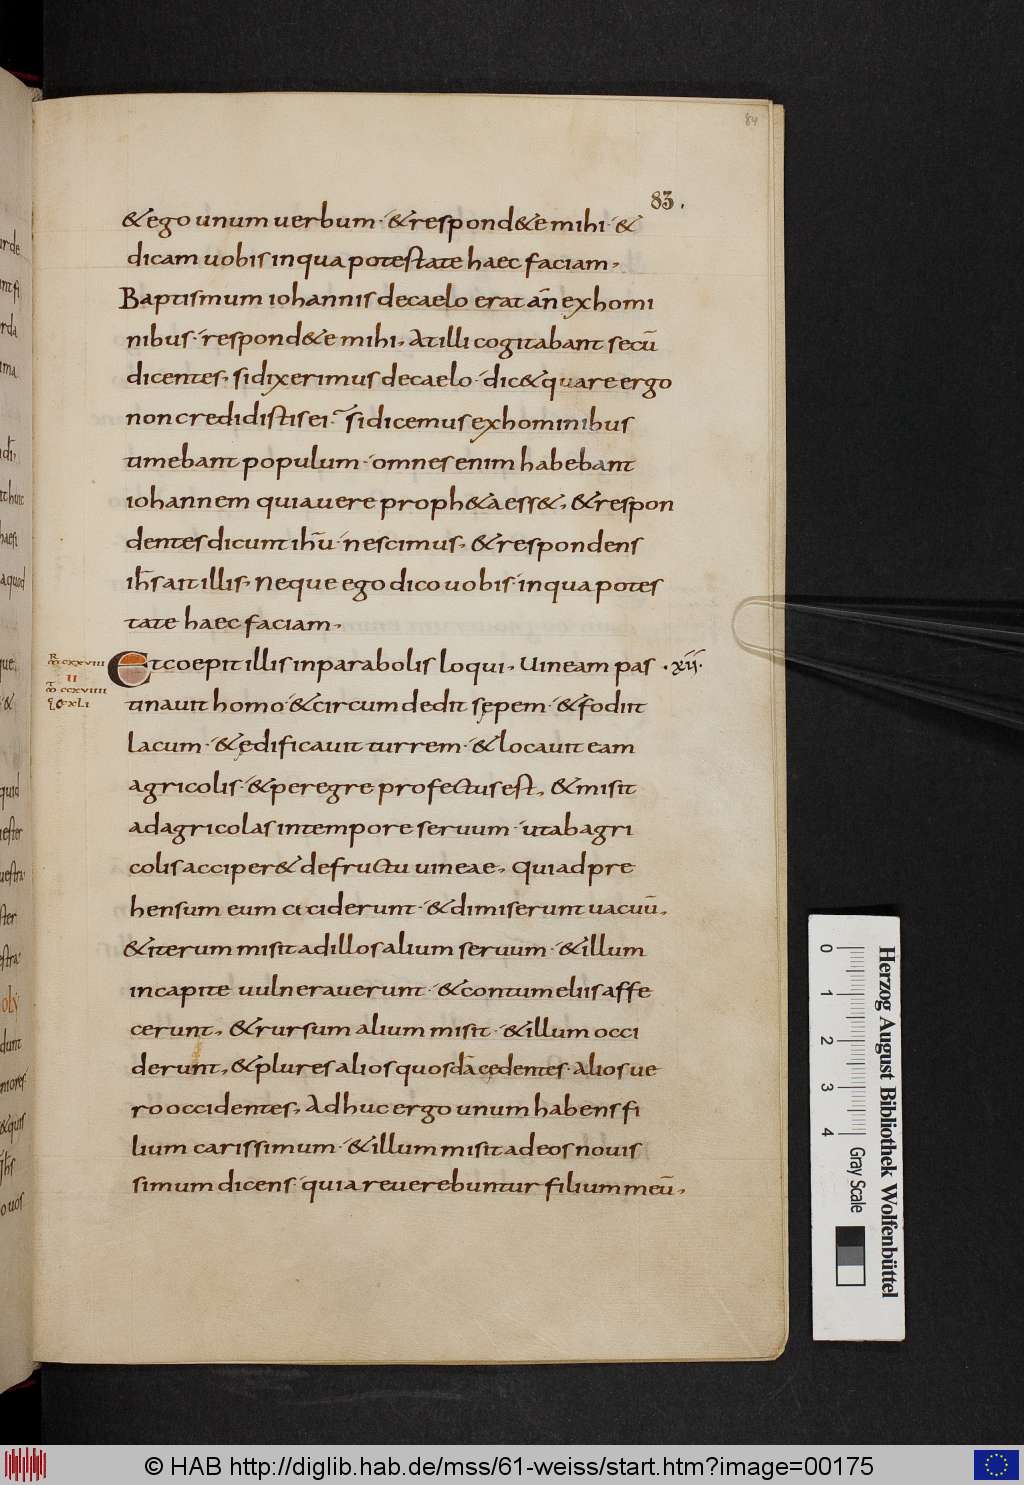 84
83.
& ego unum uerbum· & respond&e mihi· &
dicam uobis in qua potestate haec faciam,
Baptismum iohannis de caelo erat an̄ ex homi
nibus· respond&e mihi, At illi cogitabant secū
dicentes, si dixerimus de caelo· dic& quare ergo
non credidistis ei· si dicemus ex hominibus
timebant populum· omnes enim habebant
iohannem quia uere proph&a ess&, & respon
dentes dicunt ih̅u· nescimus, & respondens
ih̅s ait illis, Neque ego dico uobis· in qua potes
tate haec faciam,
Et coepit illis in parabolis loqui, Uineam pas ·xii·
cxxviii
II
ccxviiii
cxli
tinauit homo· & circumdedit sępem· & fodiit
lacum· & ędificauit turrem· & locauit eam
agricolis· & peregre profectus est, & misit
ad agricolas in tempore seruum· ut ab agri
colis acciper& de fructu uineae, Qui adpre
hensum eum ciciderunt· & dimiserunt uacuū,
& iterum misit ad illos alium seruum· & illum
in capite uulnerauerunt· & contumeliis affe
cerunt, & rursum alium misit· & illum occi
derunt, & plures alios quosdā cędentes· alios ue
ro occidentes, Adhuc ergo unum habens fi
lium carissimum· & illum misit ad eos nouis
simum dicens· quia reuerebuntur filium meū,
Herzog August Bibliothek Wolfenbüttel
0 1 2 3 4 Gray Scale
© HAB http://diglib.hab.de/mss/61-weiss/start.htm?image=00175